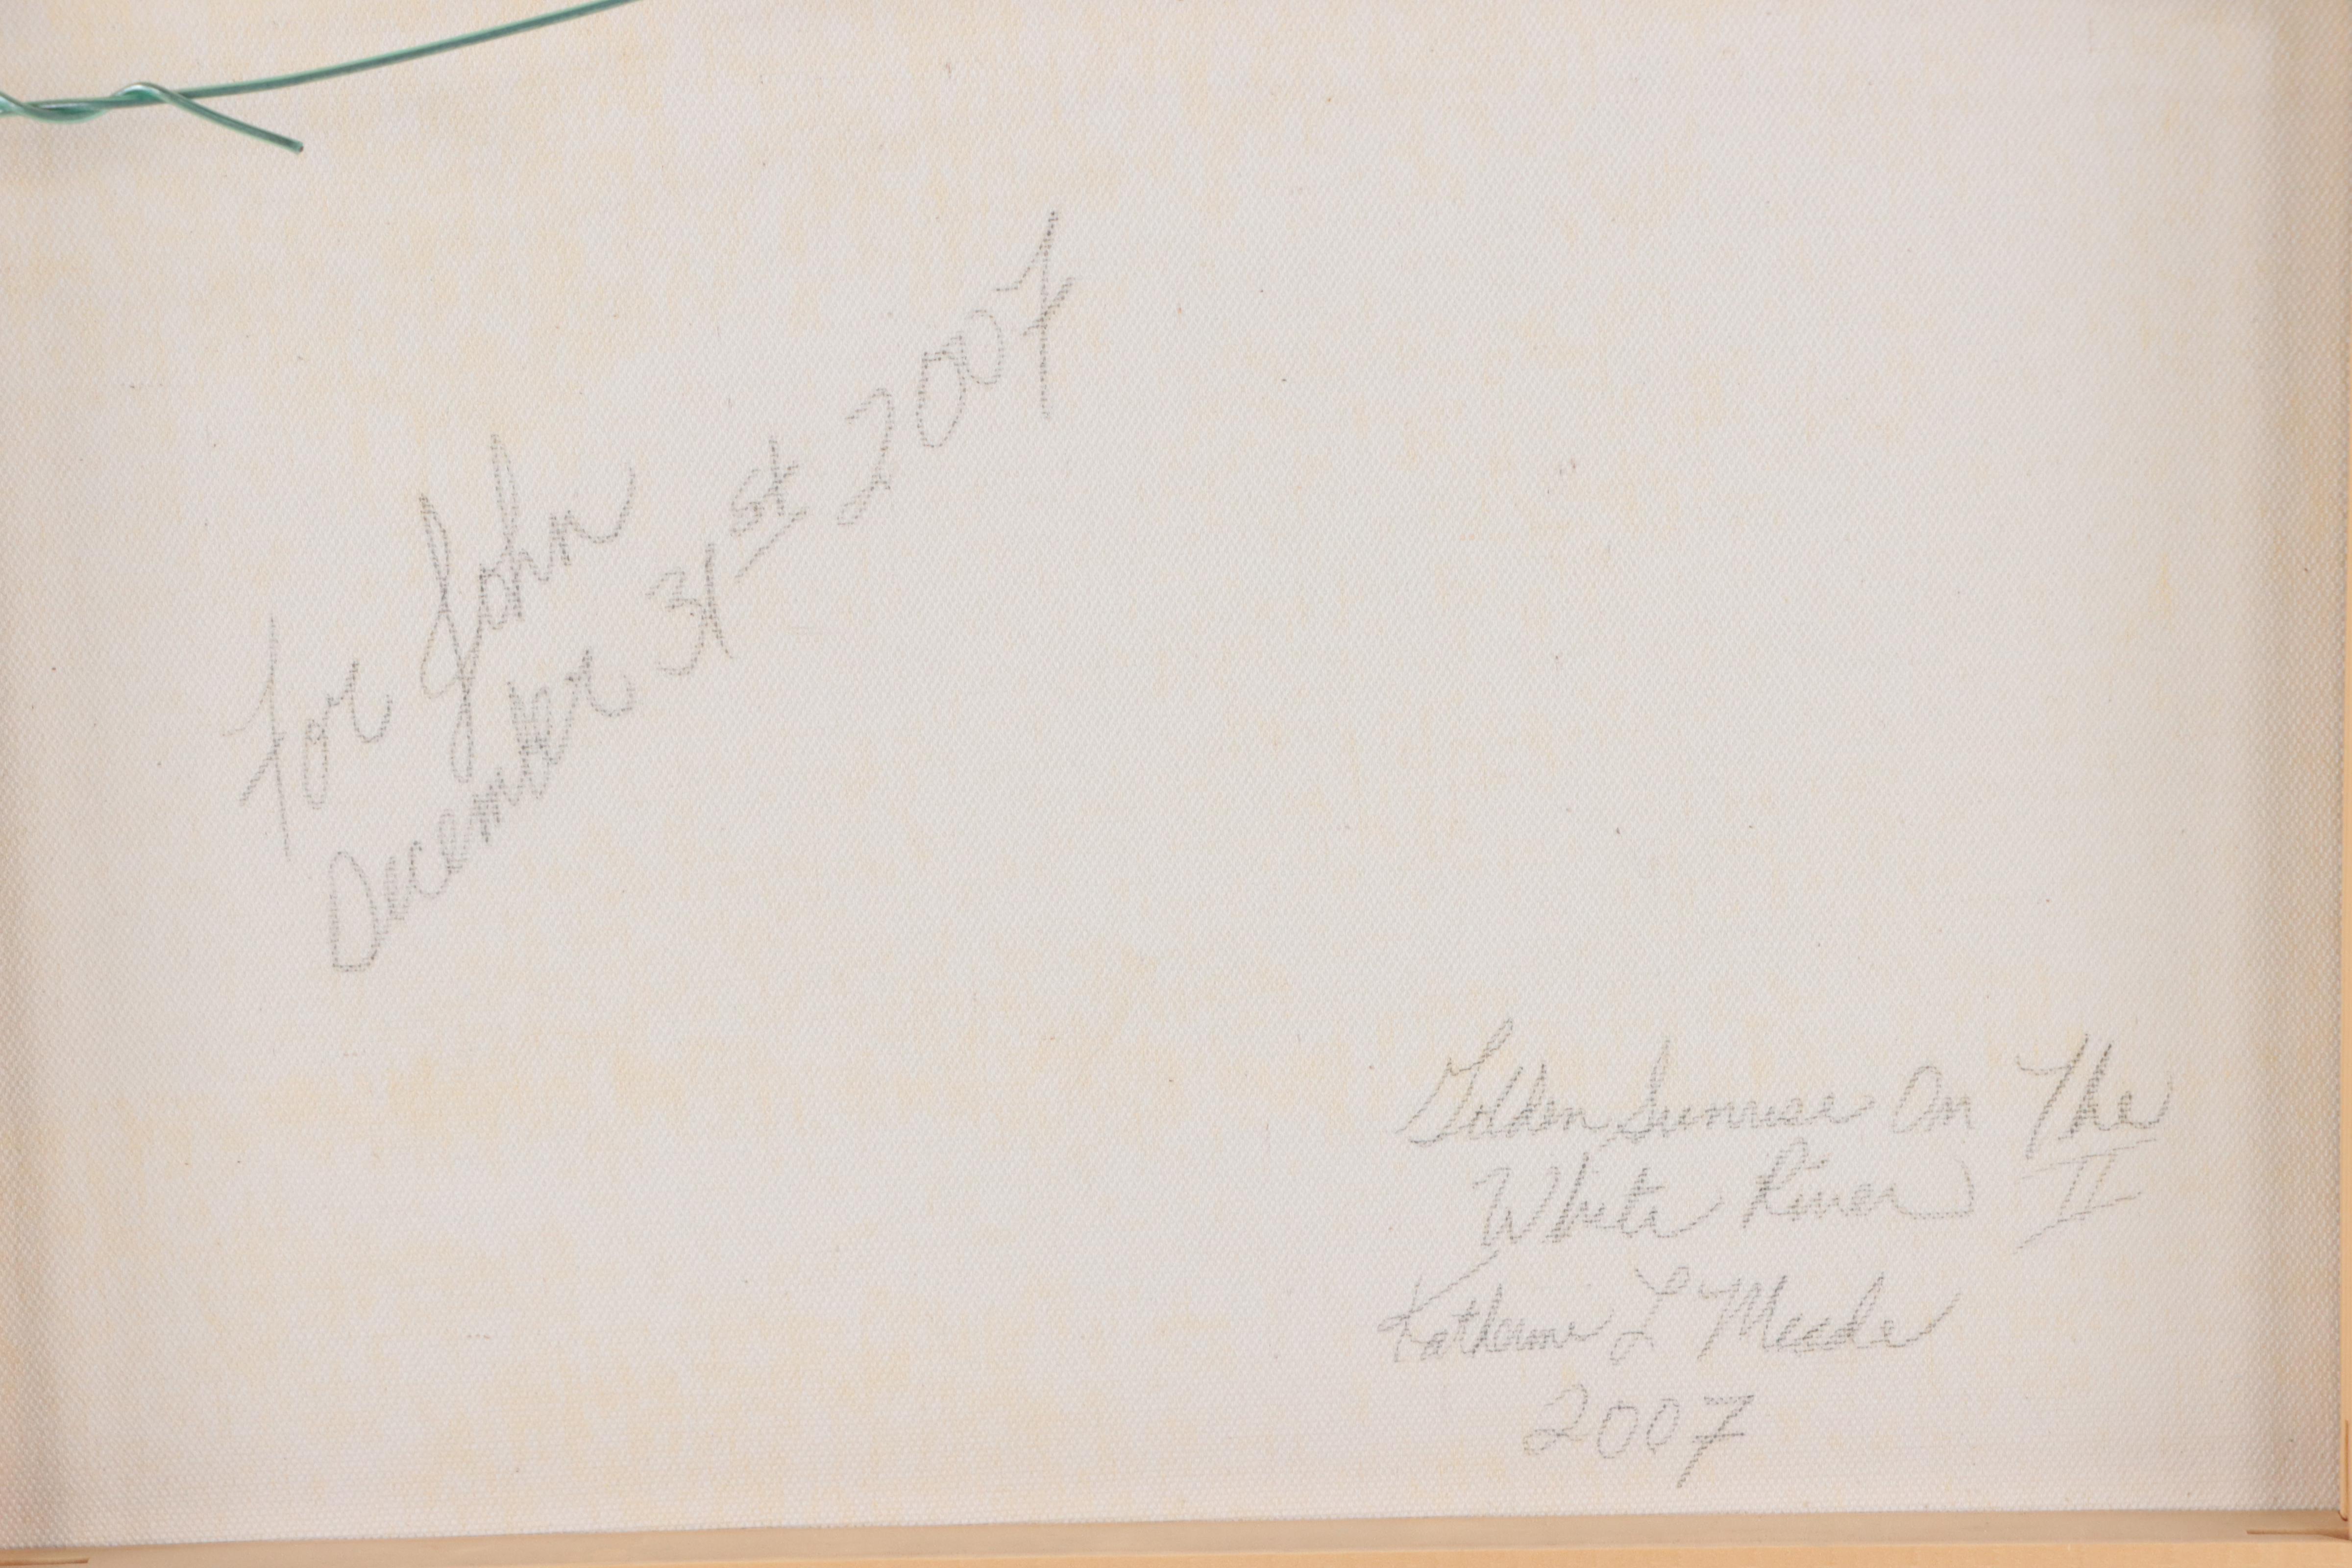 For John
December 31st 2007
Golden Sunrise On The
White River II
Katherine L Meade
2007